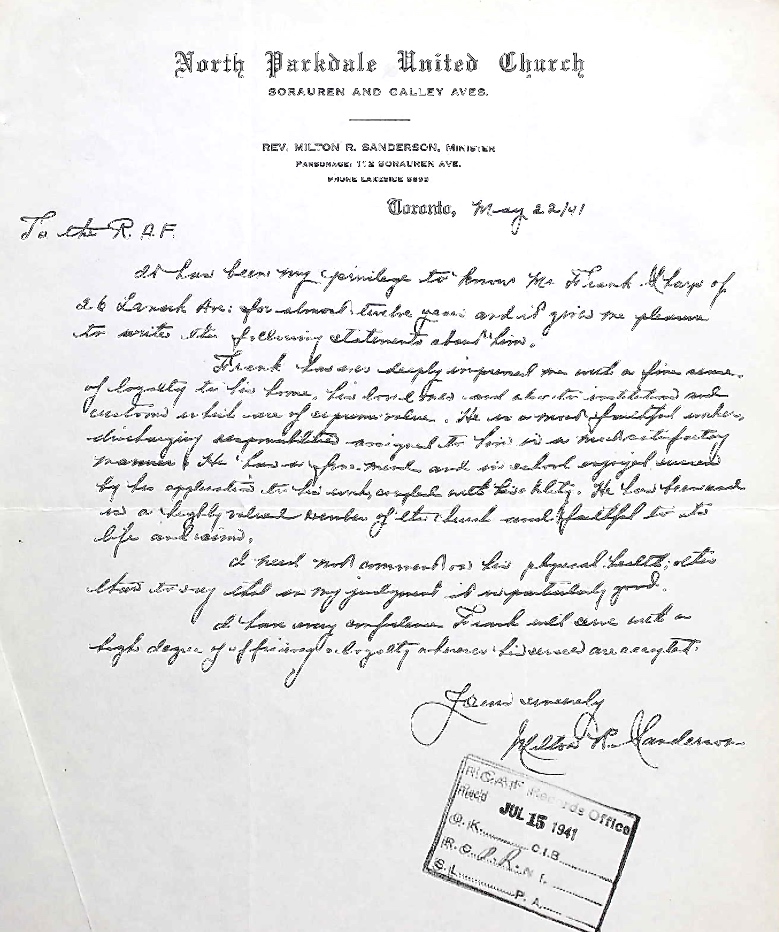 North Parkdale United Church
SORAUREN AND CALLEY AVES.
REV. MILTON R. SANDERSON, MINISTER
PARSONAGE: 112 SORAUREN AVE.
PHONE LAKESIDE
Toronto, May 22/41
To the R.A.F.
It has been my privilege to know Mr Frank Sharp of
26 Ave: for almost twelve years and it gives me pleasure
to write the following statements about him.
Frank has deeply impressed me with a fine sense
of loyalty to his home, his loved ones and also to institutions and
customs which are of supreme value. He is a most faithful worker,
discharging responsibilities assigned to him in a most satisfactory
manner. He has a fine mind and in school enjoyed success
by his application to his work, coupled with his ability. He has been and
is a highly valued member of the church and faithful to its
life and aims.
I need not comment on his physical health; other
than to say that in my judgment it is particularly good.
I have every confidence Frank will serve with a
high degree of efficiency & loyalty wherever his services are accepted.
Yours sincerely
Milton R. Sanderson
R.C.A.F. Records Office
Rec'd JUL 15 1941
O.K. C.I.B.
R.C. N.I.
S.L. P.A.